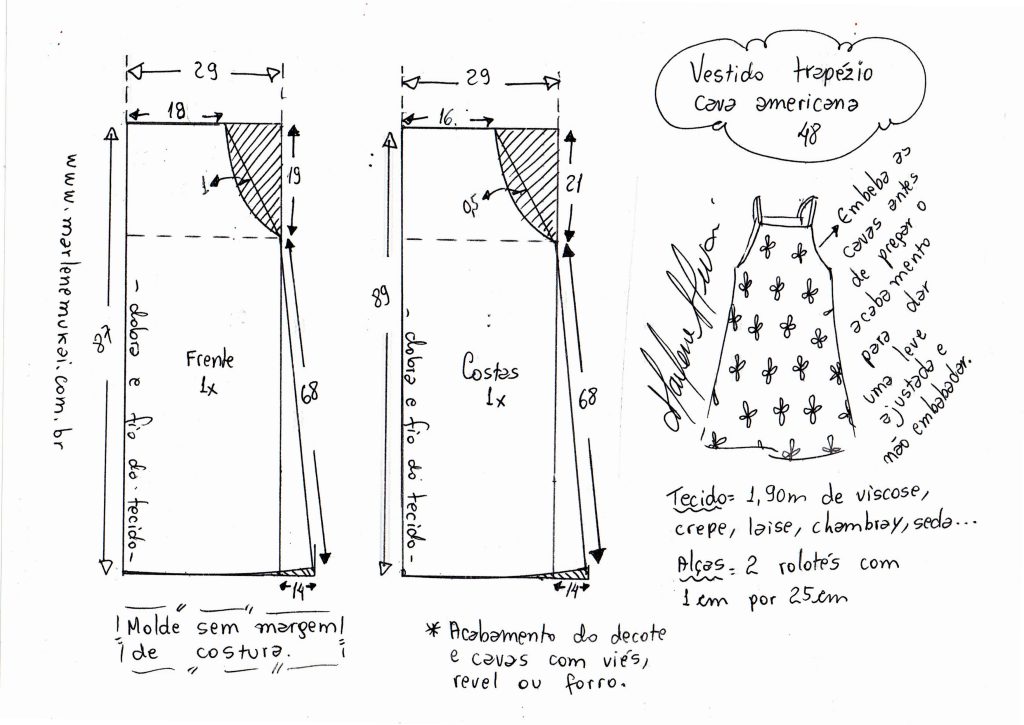 www.marlenemukai.com.br
29
18
19
1
87
68
- dobra e fio do tecido -
Frente
1x
14
Molde sem margem
de costura.
29
16
21
0,5
89
68
- dobra e fio do tecido -
Costas
1x
14
* Acabamento do decote
e cavas com viés,
revel ou forro.
Vestido trapézio
cava americana
48
Embeba as
cavas antes
de pregar o
acabamento
para dar
uma leve
ajustada e
não embabadar.
Marlene Mukai
Tecido= 1,90m de viscose,
crepe, laise, chambray, seda...
Alças= 2 rolotés com
1cm por 25cm